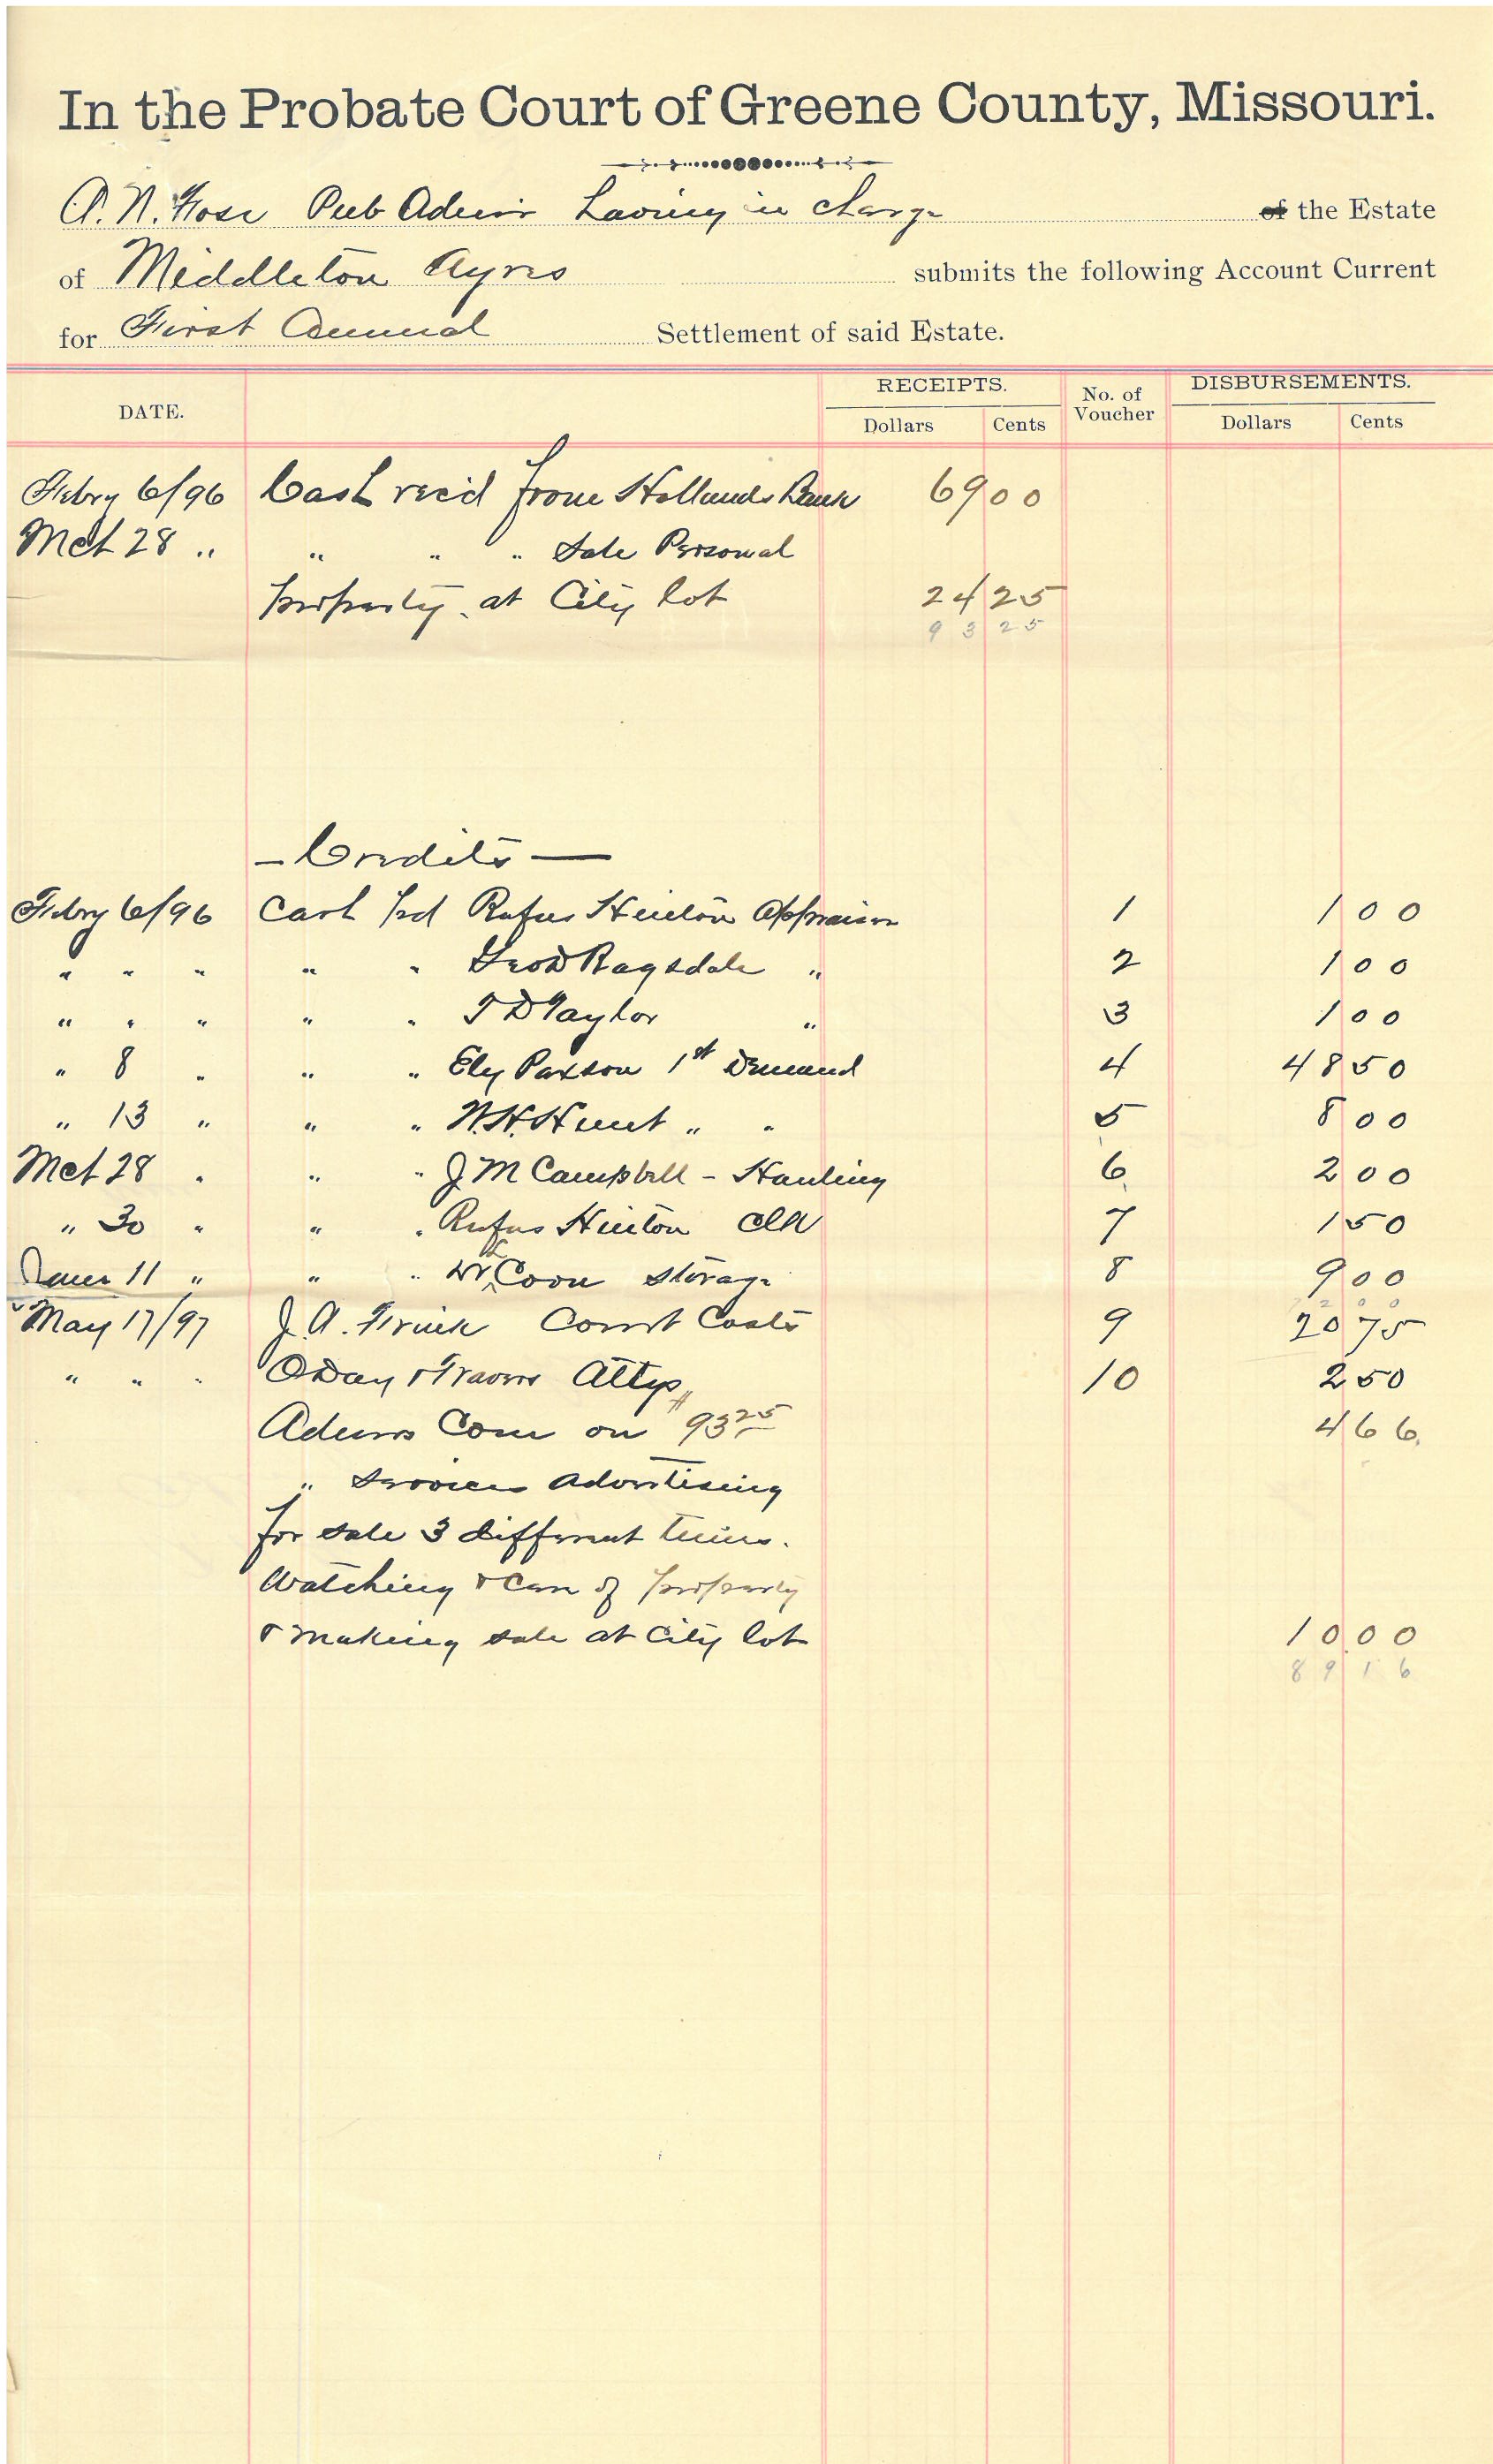 In the Probate Court of Greene County, Missouri.
A. N. Hose Pub Admr having in charge of the Estate
of Middleton Ayres submits the following Account Current
for First Annual Settlement of said Estate.
DATE. RECEIPTS. No. of Voucher DISBURSEMENTS.
Dollars Cents Dollars Cents
Febry 6/96 Cash rec'd from Hollands Bank 69 00
Mch 28 " " " " Sale Personal
property at City lot 24 25
93 25
— Credits —
Febry 6/96 Cash pd Rufus Hinton Appraiser 1 1 00
" " " " " Geo D Ragsdale " 2 1 00
" " " " " T D Taylor " 3 1 00
" 8 " " " Ely Paxson 1st Demand 4 48 50
" 13 " " " W. H. Hunt " " 5 8 00
Mch 28 " " " J M Campbell - Hauling 6 2 00
" 30 " " " Rufus Hinton Clk 7 1 50
June 11 " " " Dr Coon Storage 8 9 00
72 00
May 17/97 J. A. Frink Court Costs 9 20 75
" " " ODay & Travers Attys 10 2 50
Admrs Com on $93 25 4 66
" Services advertising
for sale 3 different times.
Watching & Care of property
& making sale at City lot 10 00
89 16